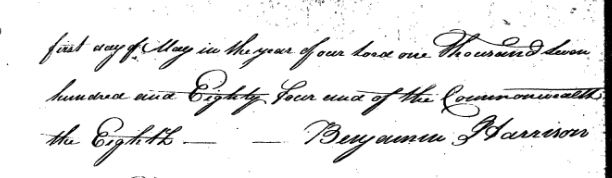 first day of May in the year of our Lord one Thousand Seven
hundred and Eighty Four and of the Commonwealth
the Eighth — — Benjamin Harrison